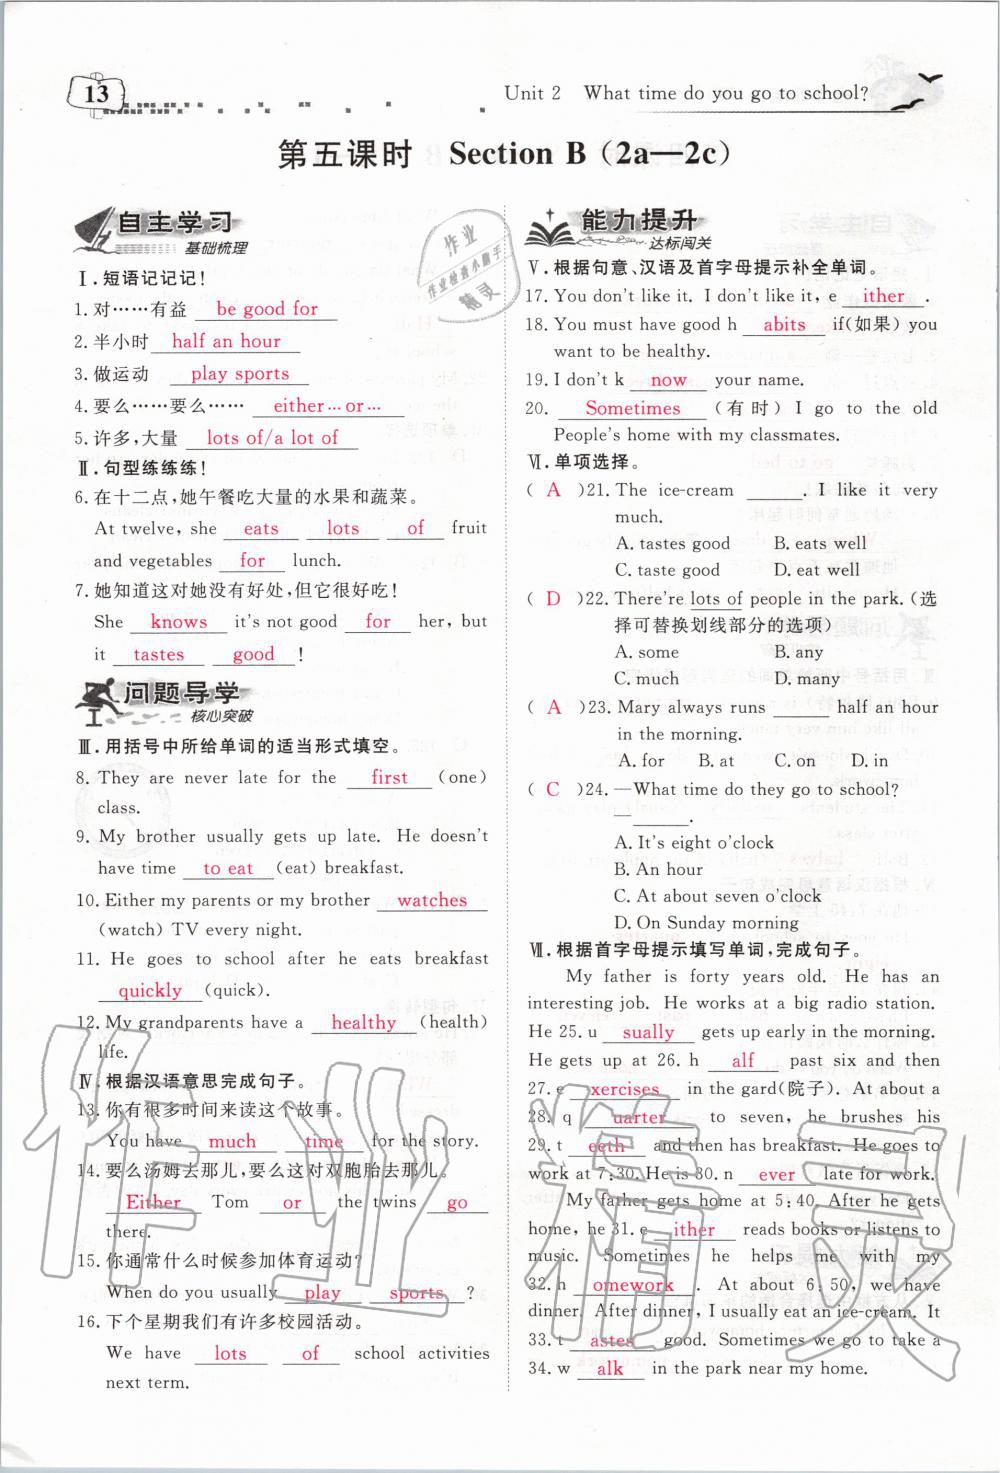 13
Unit 2 What time do you go to school?
第五课时 Section B (2a—2c)
自主学习
基础梳理
Ⅰ.短语记记记!
1. 对……有益 be good for
2. 半小时 half an hour
3. 做运动 play sports
4. 要么……要么…… either…or…
5. 许多,大量 lots of/a lot of
Ⅱ.句型练练练!
6. 在十二点,她午餐吃大量的水果和蔬菜。
At twelve, she eats lots of fruit
and vegetables for lunch.
7. 她知道这对她没有好处,但它很好吃!
She knows it's not good for her, but
it tastes good !
问题导学
核心突破
Ⅲ.用括号中所给单词的适当形式填空。
8. They are never late for the first (one)
class.
9. My brother usually gets up late. He doesn't
have time to eat (eat) breakfast.
10. Either my parents or my brother watches
(watch) TV every night.
11. He goes to school after he eats breakfast
quickly (quick).
12. My grandparents have a healthy (health)
life.
Ⅳ.根据汉语意思完成句子。
13. 你有很多时间来读这个故事。
You have much time for the story.
14. 要么汤姆去那儿,要么这对双胞胎去那儿。
Either Tom or the twins go
there.
15. 你通常什么时候参加体育运动?
When do you usually play sports ?
16. 下个星期我们有许多校园活动。
We have lots of school activities
next term.
能力提升
达标闯关
Ⅴ.根据句意、汉语及首字母提示补全单词。
17. You don't like it. I don't like it, e ither .
18. You must have good h abits if(如果) you
want to be healthy.
19. I don't k now your name.
20. Sometimes (有时) I go to the old
People's home with my classmates.
Ⅵ.单项选择。
( A )21. The ice-cream ______. I like it very
much.
A. tastes good B. eats well
C. taste good D. eat well
( D )22. There're lots of people in the park.(选
择可替换划线部分的选项)
A. some B. any
C. much D. many
( A )23. Mary always runs ______ half an hour
in the morning.
A. for B. at C. on D. in
( C )24. —What time do they go to school?
—______.
A. It's eight o'clock
B. An hour
C. At about seven o'clock
D. On Sunday morning
Ⅶ.根据首字母提示填写单词,完成句子。
My father is forty years old. He has an
interesting job. He works at a big radio station.
He 25. u sually gets up early in the morning.
He gets up at 26. h alf past six and then
27. e xercises in the gard(院子). At about a
28. q uarter to seven, he brushes his
29. t eeth and then has breakfast. He goes to
work at 7:30. He is 30. n ever late for work.
My father gets home at 5:40. After he gets
home, he 31. e ither reads books or listens to
music. Sometimes he helps me with my
32. h omework . At about 6:50, we have
dinner. After dinner, I usually eat an ice-cream. It
33. t astes good. Sometimes we go to take a
34. w alk in the park near my home.
作业
作业检查小助手
精灵
作业精灵